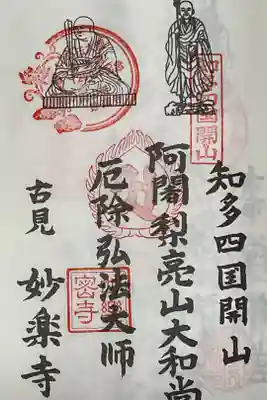 知多四国開山
阿闍梨亮山大和尚
厄除弘法大師
古見 妙楽寺
知多四国開山